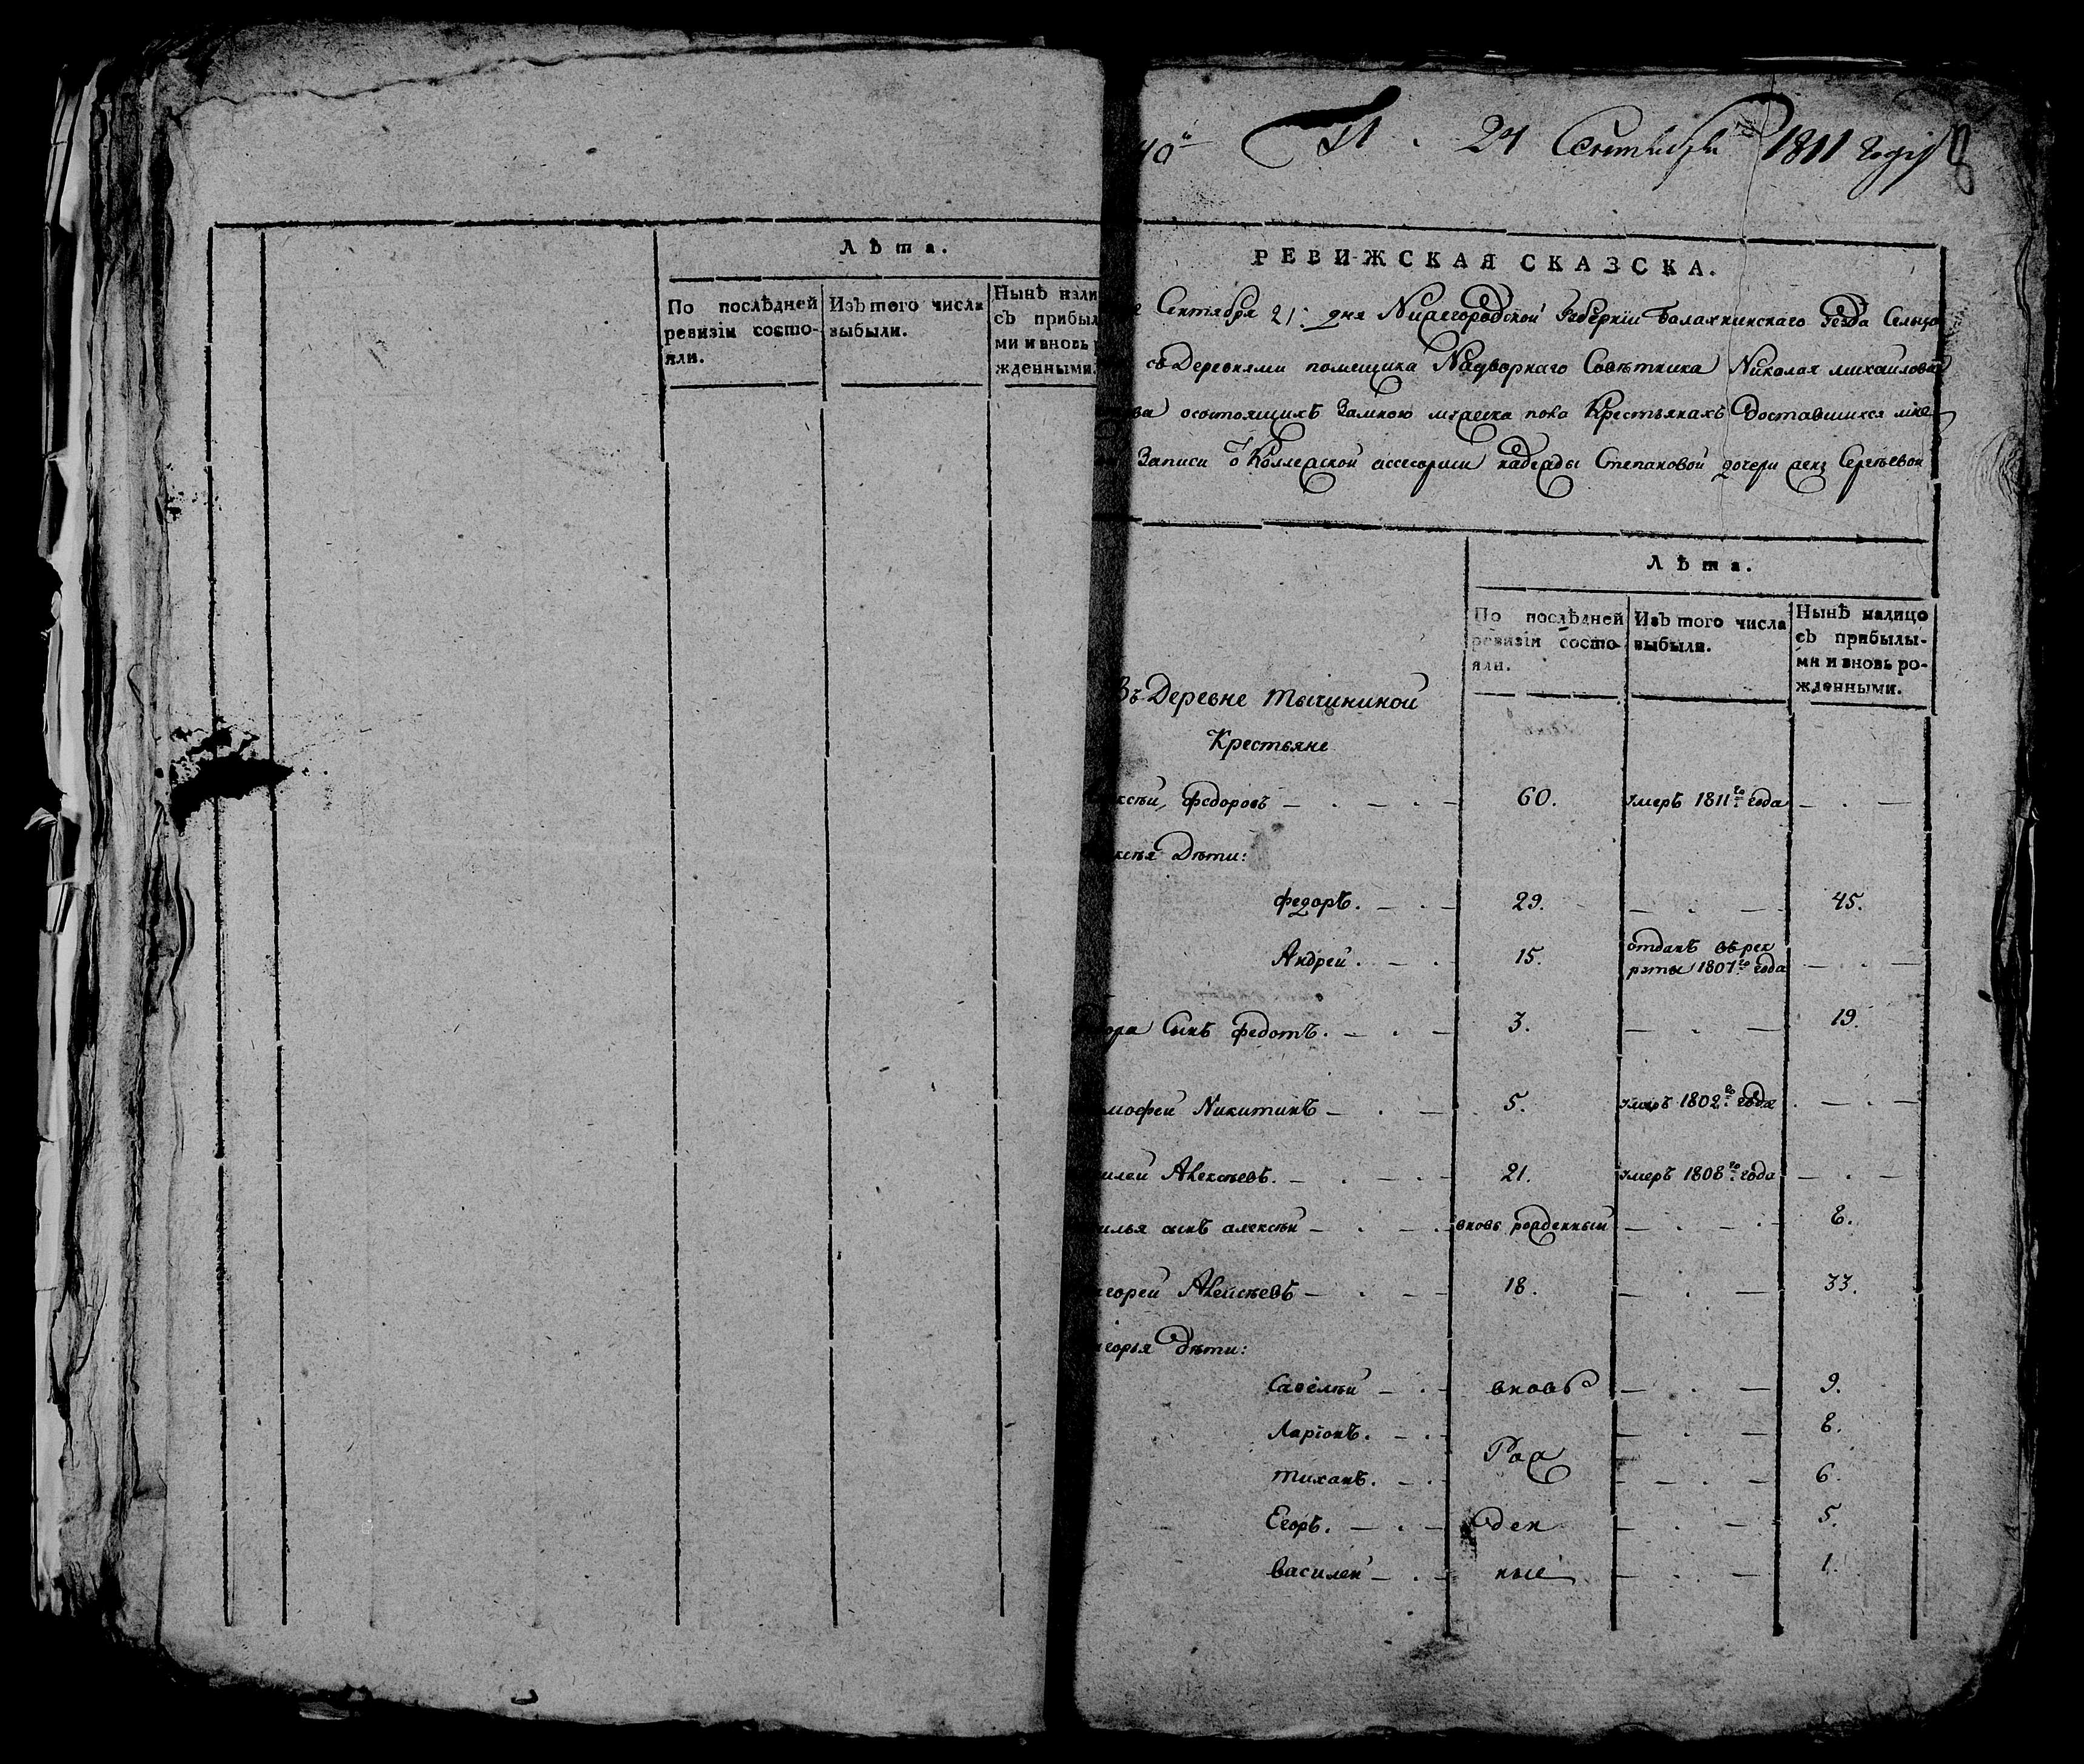 Лѣта.
По послѣдней
ревизіи состо-
яли.
Изъ того числа
выбыли.
Нынѣ нали
съ прибыл
ми и вновь р
жденными.
24 Сентября 1811 года
РЕВИЖСКАЯ СКАЗСКА.
Сентября 21: дня Нижегородской Губерніи Балахнинскаго уезда Сельца
съ Деревнями помещика Надворнаго Советника Николая михаилова
ва осостоящихъ Замною мужеска пола Крестьянахъ Доставшихся мне
Записи о Коллежской ассесорши надежды Степановой дочери жены Сергеевой
Лѣта.
По послѣдней
ревизіи состо-
яли.
Изъ того числа
выбыли.
Нынѣ налицо
съ прибылы-
ми и вновь ро-
жденными.
Въ Деревне тычининой
Крестьяне
ксѣй, Федоровъ — . — . — 60. умеръ 1811го года — . —
ксѣя Дѣти:
Федоръ. — . — 29. — . — 45.
Андрей. — . 15. отданъ въ рек
руты 1807го года — . —
ора Сынъ Федотъ. — . — 3. — . — 19.
мофей Никитинъ — . — 5. умеръ 1802го года . — . —
илей Алексѣевъ. — . — . — 21. умеръ 1808го года — . —
илья сынъ алексѣй — . — . вновь рожденный — . — . 8.
горей Алексѣевъ — . — — 18. — . — 33.
горья дѣти:
Савелѣй — . — вновь — . — 9.
Ларіонъ. — . — . — 8.
Рож
тиханъ. — . — — . — 6.
Егоръ. — . — ден — . — 5.
Василей — . — ные — . — 1.